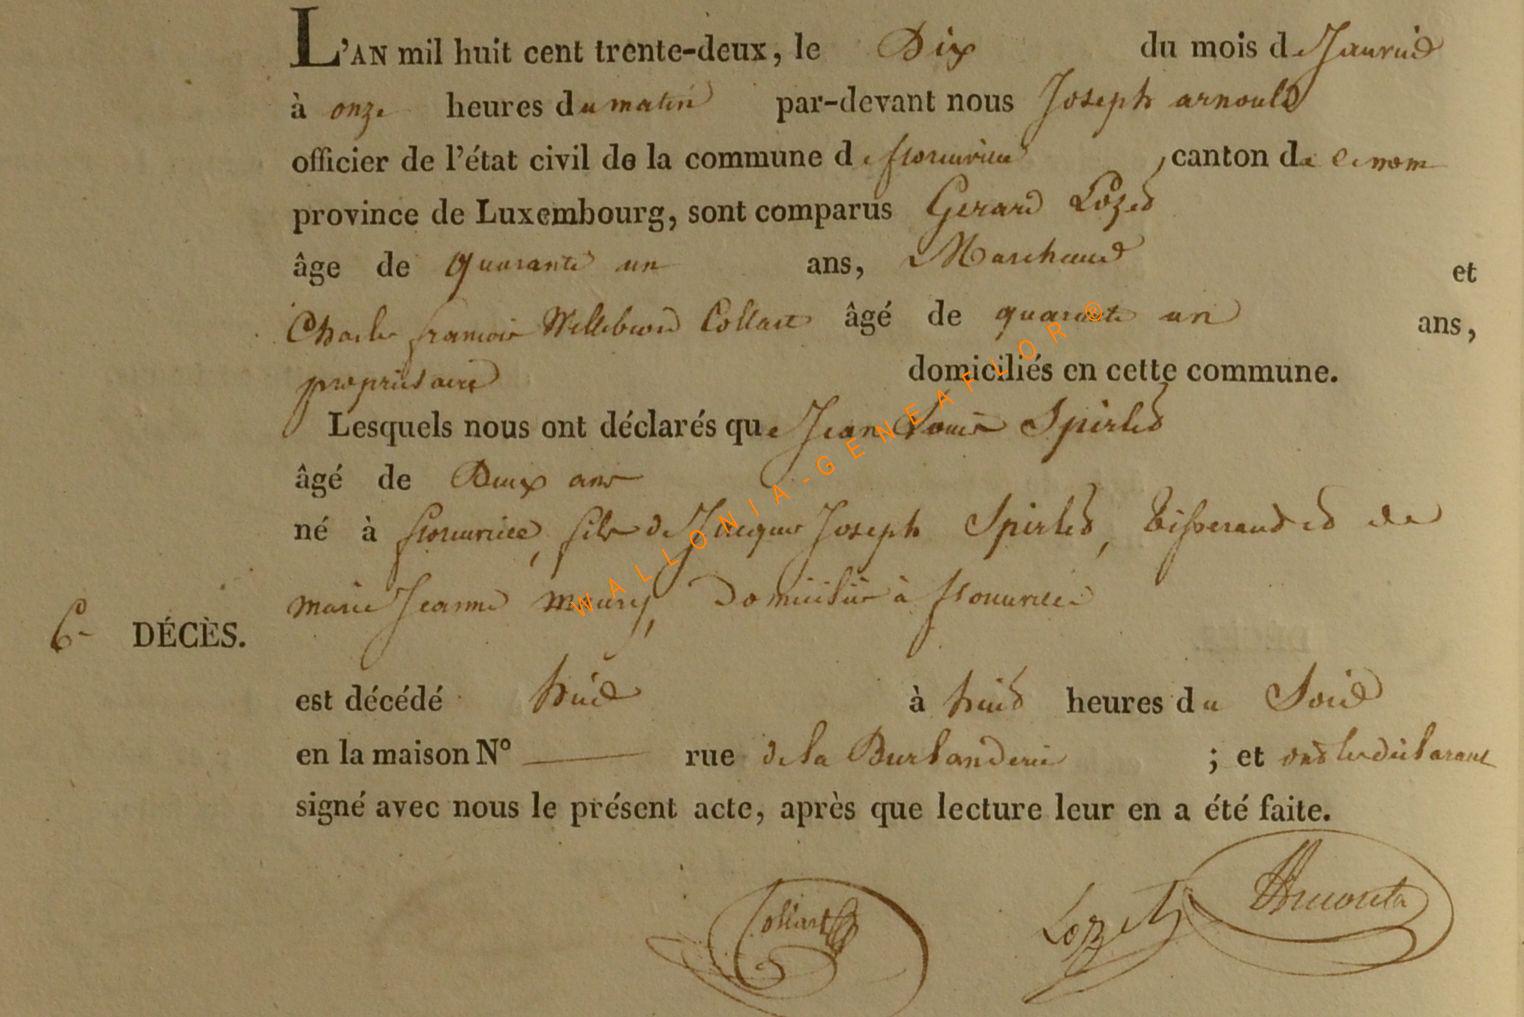 L'AN mil huit cent trente-deux, le Dix du mois de Janvier
à onze heures du matin par-devant nous Joseph arnould
officier de l'état civil de la commune de florenville, canton de ce nom
province de Luxembourg, sont comparus Gerard Lozet
âge de quarante un ans, Marchand et
Charles francois Willebrord Collart âgé de quarante un ans,
propriétaire domiciliés en cette commune.
Lesquels nous ont déclarés que Jean Louis Spirlet
âgé de Deux ans
né à florenville, fils de Jacques Joseph Spirlet, tisserand et de
marie Jeanne maury, domiciliés à florenville
6e DÉCÈS.
est décédé hier à huit heures du Soir
en la maison N° rue de la ; et ont les déclarant
signé avec nous le présent acte, après que lecture leur en a été faite.
Collart Lozet
WALLONIA-GENEAFLOR®